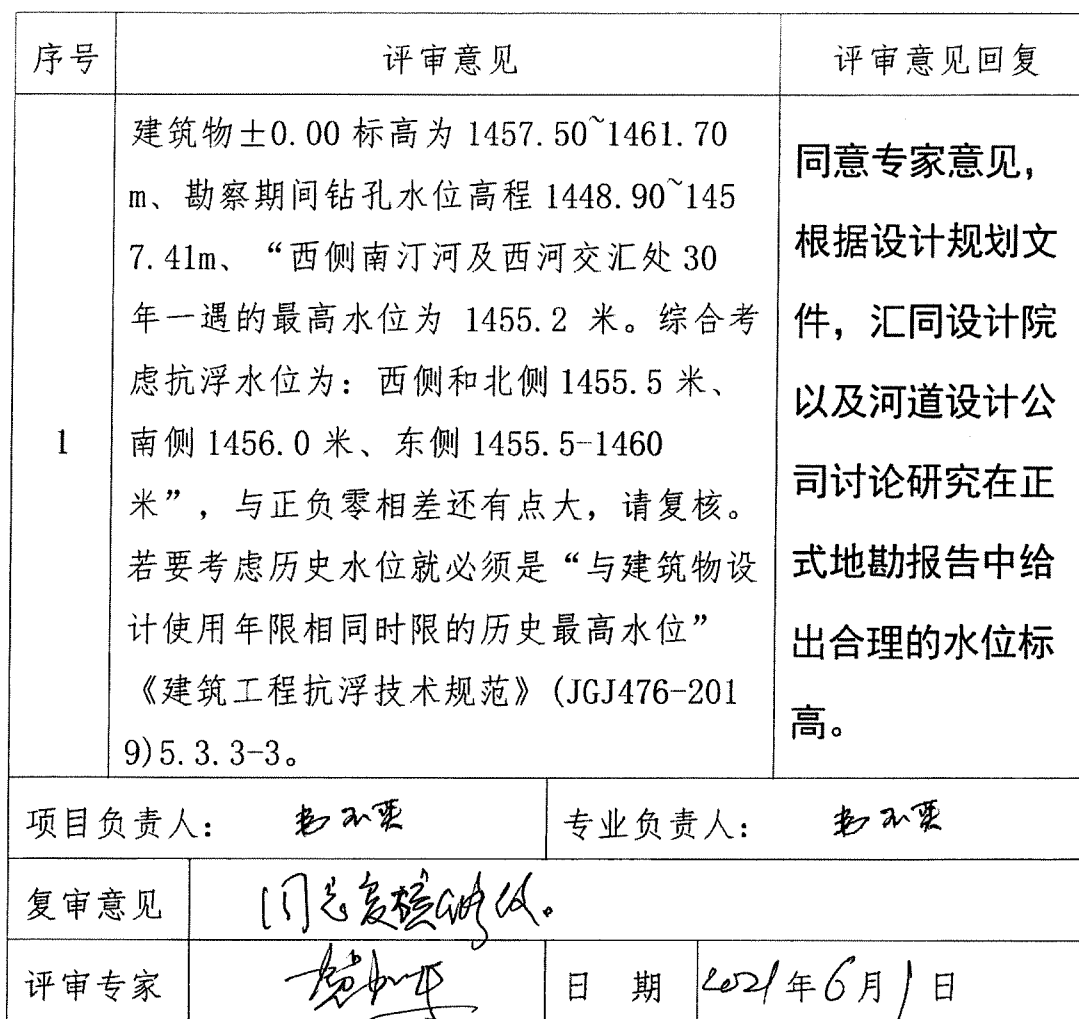 序号 评审意见 评审意见回复
1
建筑物±0.00 标高为 1457.50~1461.70
m、勘察期间钻孔水位高程 1448.90~145
7.41m、“西侧南汀河及西河交汇处 30
年一遇的最高水位为 1455.2 米。综合考
虑抗浮水位为：西侧和北侧 1455.5 米、
南侧 1456.0 米、东侧 1455.5-1460
米”，与正负零相差还有点大，请复核。
若要考虑历史水位就必须是“与建筑物设
计使用年限相同时限的历史最高水位”
《建筑工程抗浮技术规范》(JGJ476-201
9)5.3.3-3。
同意专家意见，
根据设计规划文
件，汇同设计院
以及河道设计公
司讨论研究在正
式地勘报告中给
出合理的水位标
高。
项目负责人： 专业负责人：
复审意见 同意复核修改。
评审专家 日 期 2021年6月1日